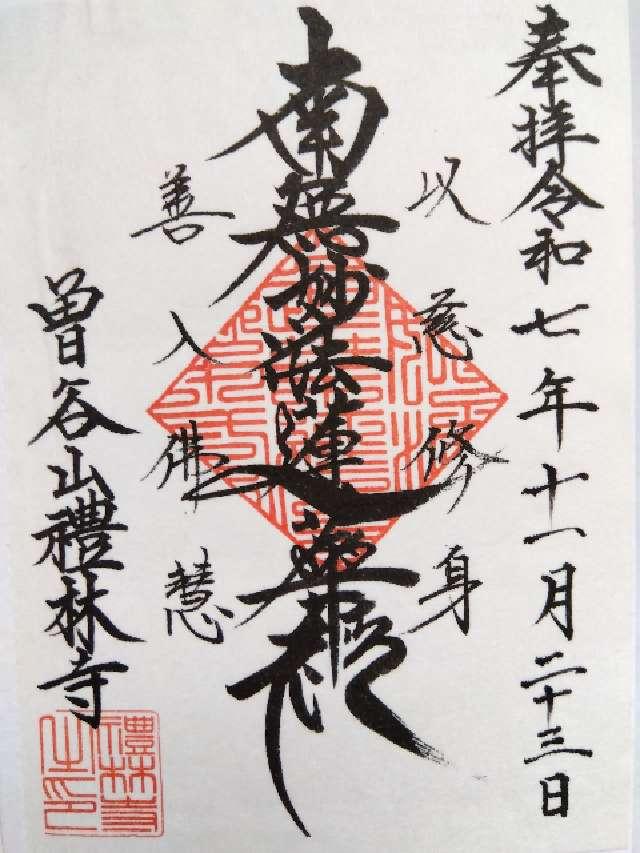 奉拝令和七年十一月二十三日
以慈修身
南無妙法蓮華経
善入佛慧
曽谷山禮林寺
禮林寺之印